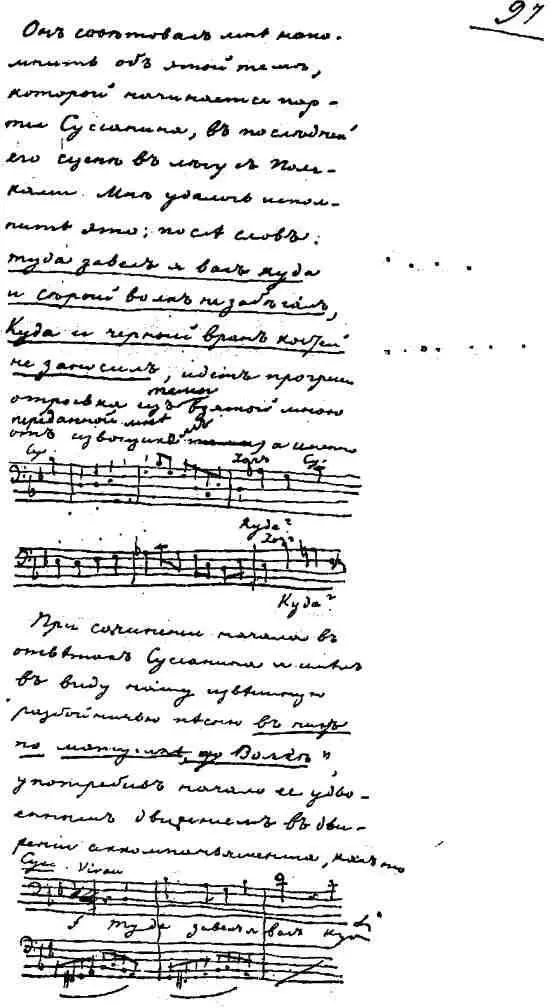 97
Онъ совѣтовалъ мнѣ напо-
мнить объ этой темѣ,
которой начинается пар-
тія Сусанина, въ послѣдней
его сценѣ въ лѣсу съ Поля-
ками. Мнѣ удалось испол-
нить это; послѣ словъ:
туда завелъ я васъ, куда
и сѣрый волкъ не забѣгалъ,
Куда и черный вранъ костей
не заносилъ, идетъ прогрес
темы
взятой мною
переданной мнѣ
отъ извощика а именно
Сус.
Хоръ
Куда?
Хоръ
Куда?
При сочиненіи начала въ
отвѣтахъ Сусанина я имѣлъ
въ виду нашу извѣстную
разбойничью пѣсню въ низъ
по матушкѣ, по Волгѣ"
употребивъ начало ее удво-
еннымъ движеніемъ въ дви-
женіи аккомпаньемента, какъ то
Сус.
Туда завелъ я васъ куда